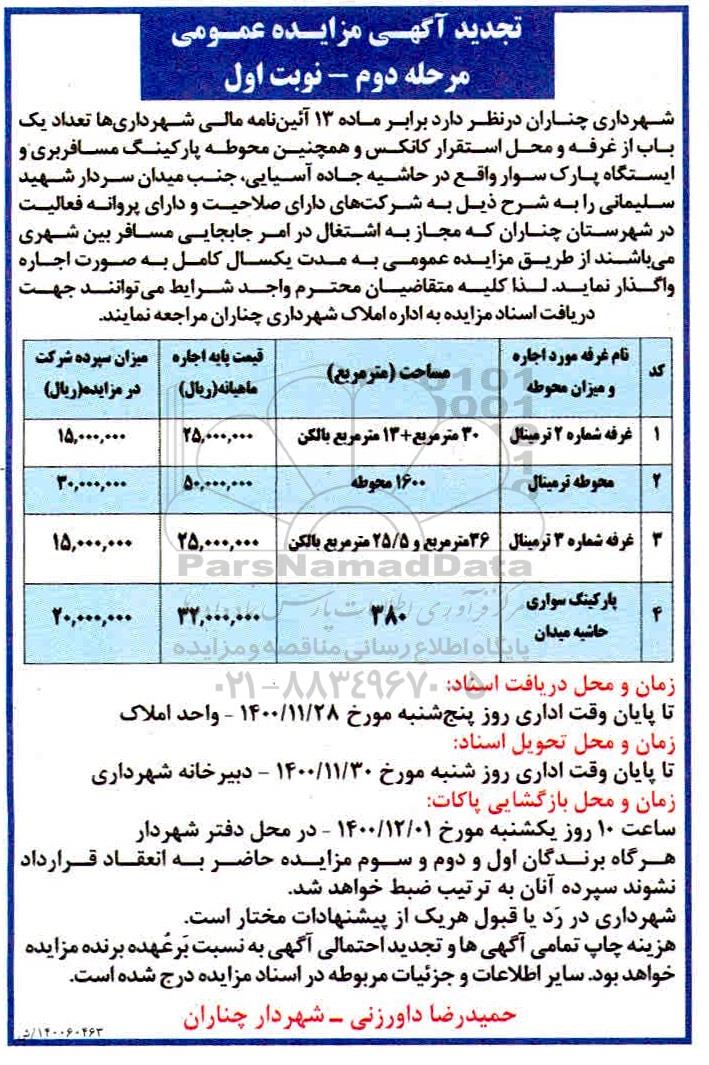 تجدید آگهـی مزایـده عمـومی
مرحله دوم – نوبت اول
شهرداری چناران درنظر دارد برابر ماده ۱۳ آئین‌نامه مالی شهرداری‌ها تعداد یک
باب از غرفه و محل استقرار کانکس و همچنین محوطه پارکینگ مسافربری و
ایستگاه پارک سوار واقع در حاشیه جاده آسیایی، جنب میدان سردار شهید
سلیمانی را به شرح ذیل به شرکت‌های دارای صلاحیت و دارای پروانه فعالیت
در شهرستان چناران که مجاز به اشتغال در امر جابجایی مسافر بین شهری
می‌باشند از طریق مزایده عمومی به مدت یکسال کامل به صورت اجاره
واگذار نماید. لذا کلیه متقاضیان محترم واجد شرایط می‌توانند جهت
دریافت اسناد مزایده به اداره املاک شهرداری چناران مراجعه نمایند.
کد نام غرفه مورد اجاره و میزان محوطه مساحت (مترمربع) قیمت پایه اجاره ماهیانه(ریال) میزان سپرده شرکت در مزایده(ریال)
۱ غرفه شماره ۲ ترمینال ۳۰ مترمربع+۱۳ مترمربع بالکن ۲۵,۰۰۰,۰۰۰ ۱۵,۰۰۰,۰۰۰
۲ محوطه ترمینال ۱۶۰۰ محوطه ۵۰,۰۰۰,۰۰۰ ۳۰,۰۰۰,۰۰۰
۳ غرفه شماره ۳ ترمینال ۳۶مترمربع و ۲۵/۵ مترمربع بالکن ۲۵,۰۰۰,۰۰۰ ۱۵,۰۰۰,۰۰۰
۴ پارکینگ سواری حاشیه میدان ۳۸۰ ۳۲,۰۰۰,۰۰۰ ۲۰,۰۰۰,۰۰۰
ParsNamadData
مرکز فرآوری اطلاعات پارس نماد داده ها
پایگاه اطلاع رسانی مناقصه و مزایده
۰۲۱-۸۸۳۴۹۶۷۰-۵
زمان و محل دریافت اسناد:
تا پایان وقت اداری روز پنج‌شنبه مورخ ۱۴۰۰/۱۱/۲۸ - واحد املاک
زمان و محل تحویل اسناد:
تا پایان وقت اداری روز شنبه مورخ ۱۴۰۰/۱۱/۳۰ - دبیرخانه شهرداری
زمان و محل بازگشایی پاکات:
ساعت ۱۰ روز یکشنبه مورخ ۱۴۰۰/۱۲/۰۱ - در محل دفتر شهردار
هرگاه برندگان اول و دوم و سوم مزایده حاضر به انعقاد قرارداد
نشوند سپرده آنان به ترتیب ضبط خواهد شد.
شهرداری در رَد یا قبول هریک از پیشنهادات مختار است.
هزینه چاپ تمامی آگهی ها و تجدید احتمالی آگهی به نسبت بَر عُهده برنده مزایده
خواهد بود. سایر اطلاعات و جزئیات مربوطه در اسناد مزایده درج شده است.
حمیدرضا داورزنی ـ شهردار چناران
۱۴۰۰۶۰۴۶۳/ش